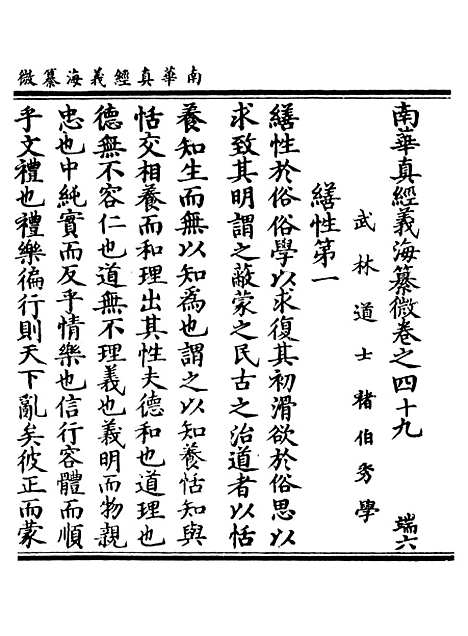 南華真經義海纂微
南華真經義海纂微卷之四十九 瑞六
武林道士褚伯秀學
繕性第一
繕性於俗俗學以求復其初滑欲於俗思以
求致其明謂之蔽蒙之民古之治道者以恬
養知生而無以知為也謂之以知養恬知與
恬交相養而和理出其性夫德和也道理也
德無不容仁也道無不理義也義明而物親
忠也中純實而反乎情樂也信行容體而順
乎文禮也禮樂徧行則天下亂矣彼正而蒙